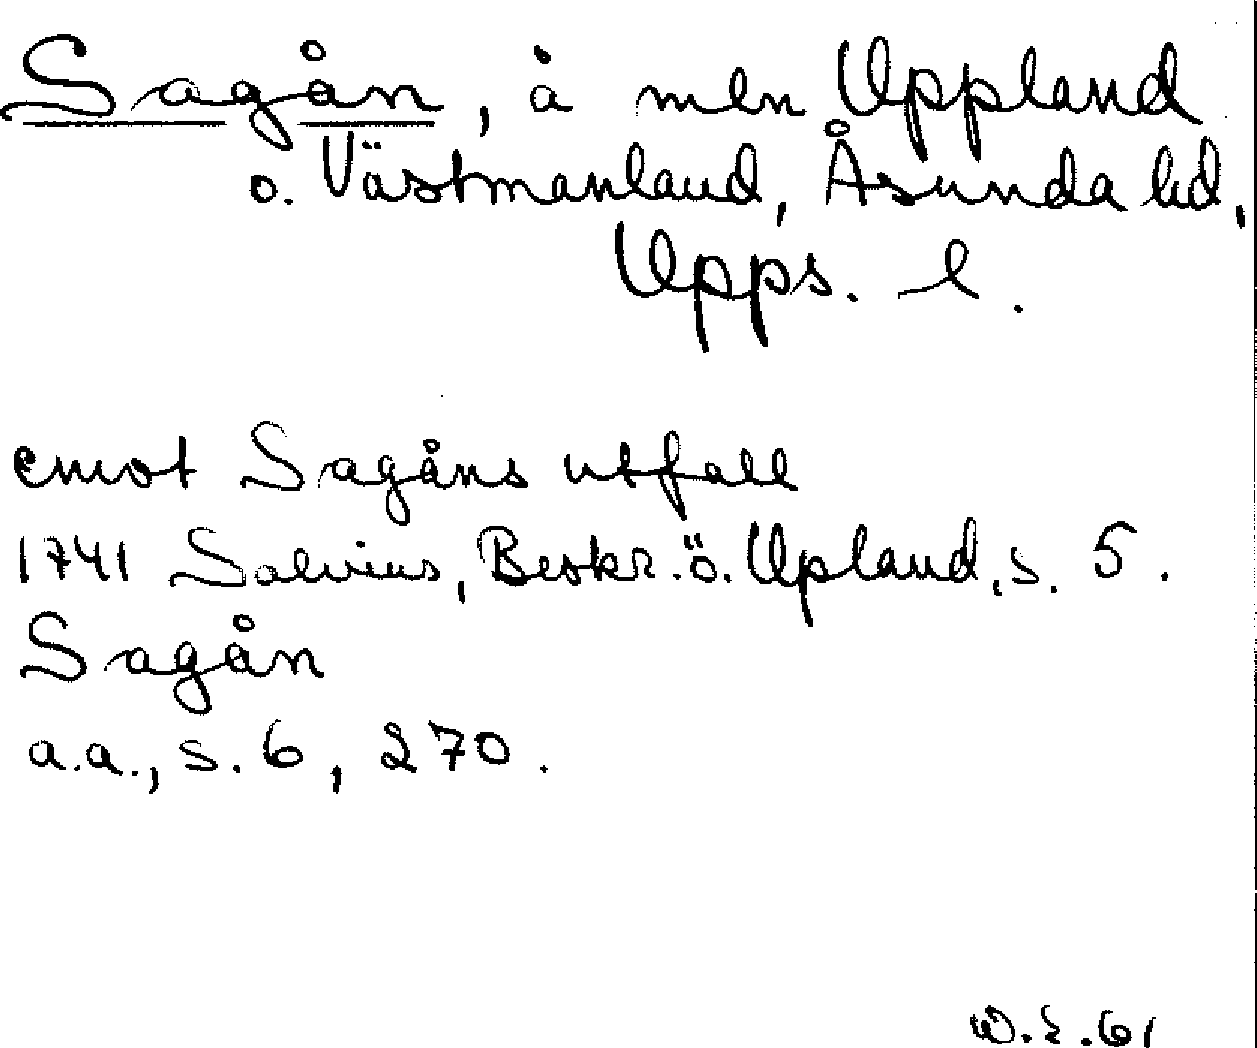 Sagån, å mln Uppland
o. Västmanland, Åsunda hd,
Upps. l.
emot Sagåns utfall
1741 Salvius, Beskr. ö. Upland, s. 5.
Sagån
a.a., s. 6, 270.
W.E. 61